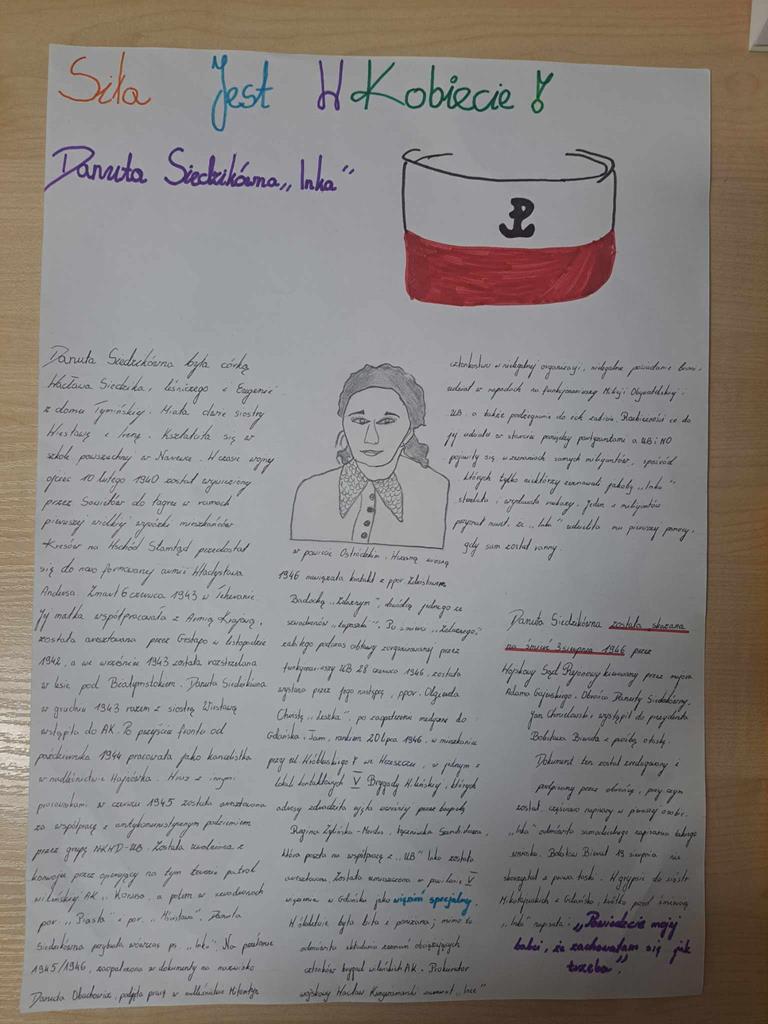 Siła Jest W Kobiecie!
Danuta Siedzikówna „Inka"
Danuta Siedzikówna była córką
Wacława Siedzika, leśniczego i Eugenii
z domu Tymińskiej. Miała dwie siostry
Wiesławę i Irenę. Kształciła się w
szkole powszechnej w Narewce. W czasie wojny
ojciec 10 lutego 1940 został wywieziony
przez Sowietów do łagru w ramach
pierwszej wielkiej wywózki mieszkańców
Kresów na Wschód. Stamtąd przedostał
się do nowo formowanej armii Władysława
Andersa. Zmarł 6 czerwca 1943 w Teheranie.
Jej matka współpracowała z Armią Krajową,
została aresztowana przez Gestapo w listopadzie
1942, a we wrześniu 1943 została rozstrzelana
w lesie pod Białymstokiem. Danuta Siedzikówna
w grudniu 1943 razem z siostrą Wiesławą
wstąpiła do AK. Po przejściu frontu od
października 1944 pracowała jako kancelistka
w nadleśnictwie Hajnówka. Wraz z innymi
pracownikami w czerwcu 1945 została aresztowana
za współpracę z antykomunistycznym podziemiem
przez grupę NKWD-UB. Została uwolniona z
konwoju przez operujący na tym terenie patrol
wileńskiej AK „Konusa", a potem w szwadronach
por. „Piasta" i por. „Mścisława". Danuta
Siedzikówna przybrała wówczas ps. „Inka". Na przełomie
1945/1946, zaopatrzona w dokumenty na nazwisko
Danuta Obuchowicz, podjęła pracę w nadleśnictwie Miłomłyn
w powiecie Ostródzkim. Wczesną wiosną
1946 nawiązała kontakt z ppor. Zdzisławem
Badochą „Żelaznym", dowódcą jednego ze
szwadronów „Łupaszki". Po śmierci „Żelaznego",
zabitego podczas obławy zorganizowanej przez
funkcjonariuszy UB 28 czerwca 1946, została
wysłana przez jego następcę, ppor. Olgierda
Christę „Leszka", po zaopatrzenie medyczne do
Gdańska. Tam, rankiem 20 lipca 1946, w mieszkaniu
przy ul. Wróblewskiego 7 we Wrzeszczu, w jednym z
lokali kontaktowych V Brygady Wileńskiej, których
adresy zdradziła ujęta wcześniej przez bezpiekę
Regina Żylińska-Mordas, łączniczka Szendzielarza,
która poszła na współpracę z „UB" Inka została
aresztowana. Została umieszczona w pawilonie V
więzienia w Gdańsku jako więzień specjalny.
W śledztwie była bita i poniżana; mimo to
odmówiła składania zeznań obciążających
członków brygad wileńskich AK. Prokurator
wojskowy Wacław Krzyżanowski zarzucał „Ince"
członkostwo w nielegalnej organizacji, nielegalne posiadanie broni,
udział w napadach na funkcjonariuszy Milicji Obywatelskiej i
UB, a także podżeganie do zabicia. Rozbieżności co do
jej udziału w starciu pomiędzy partyzantami a UB i MO
pojawiły się w zeznaniach samych milicjantów, spośród
których tylko niektórzy zeznawali jakoby „Inka"
strzelała i wydawała rozkazy. Jeden z milicjantów
przyznał nawet, że „Inka" udzieliła mu pierwszej pomocy,
gdy sam został ranny.
Danuta Siedzikówna została skazana
na śmierć 3 sierpnia 1946 przez
Wojskowy Sąd Rejonowy kierowany przez majora
Adama Gajewskiego. Obrońca Danuty Siedzikówny,
Jan Chmielowski, wystąpił do prezydenta
Bolesława Bieruta z prośbą o łaskę.
Dokument ten został zredagowany i
podpisany przez obrońcę, przy czym
został częściowo napisany w pierwszej osobie.
„Inka" odmówiła samodzielnego napisania takiego
wniosku. Bolesław Bierut 19 sierpnia nie
skorzystał z prawa łaski. W grypsie do sióstr
Mikołajewskich z Gdańska, krótko przed śmiercią
„Inka" napisała: „Powiedzcie mojej
babci, że zachowałam się jak
trzeba".